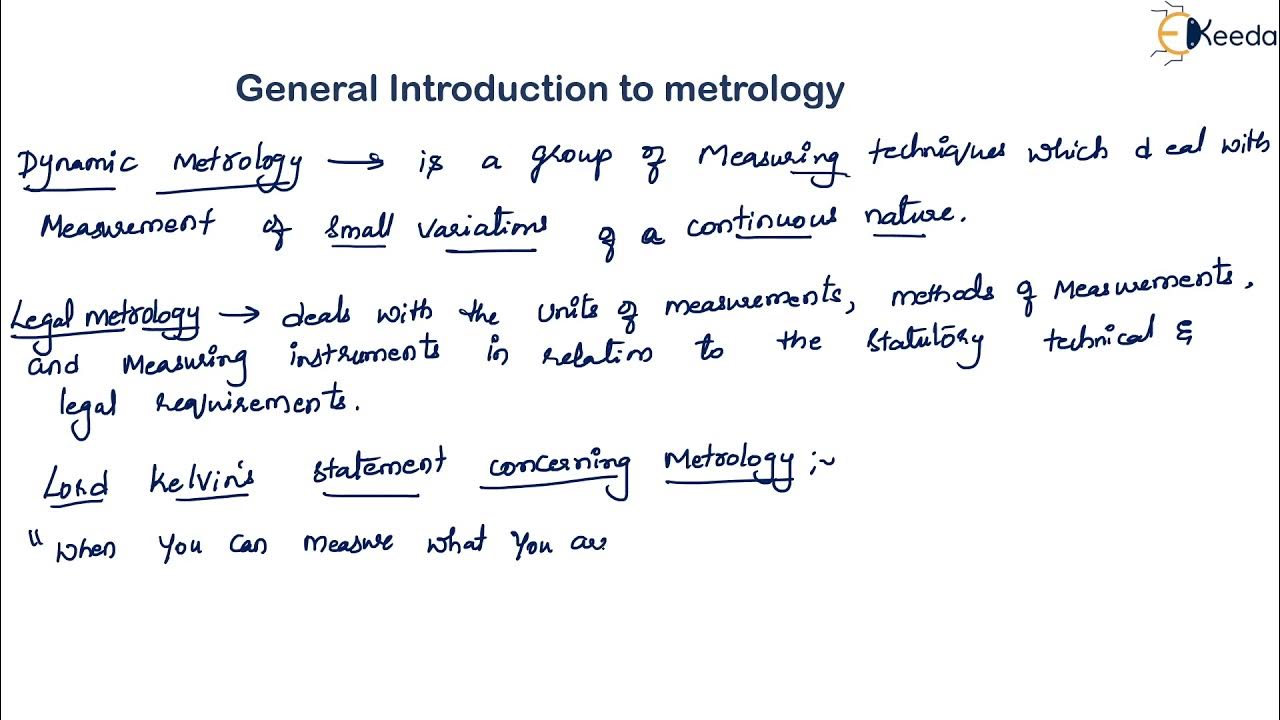 EKeeda
General Introduction to metrology
Dynamic Metrology → is a group of Measuring techniques which deal with
Measurement of small variations of a continuous nature.
Legal metrology → deals with the Units of measurements, methods of Measurements,
and Measuring instruments in relation to the statutory technical &
legal requirements.
Lord Kelvin's statement concerning Metrology ;~
" When you can measure what you are